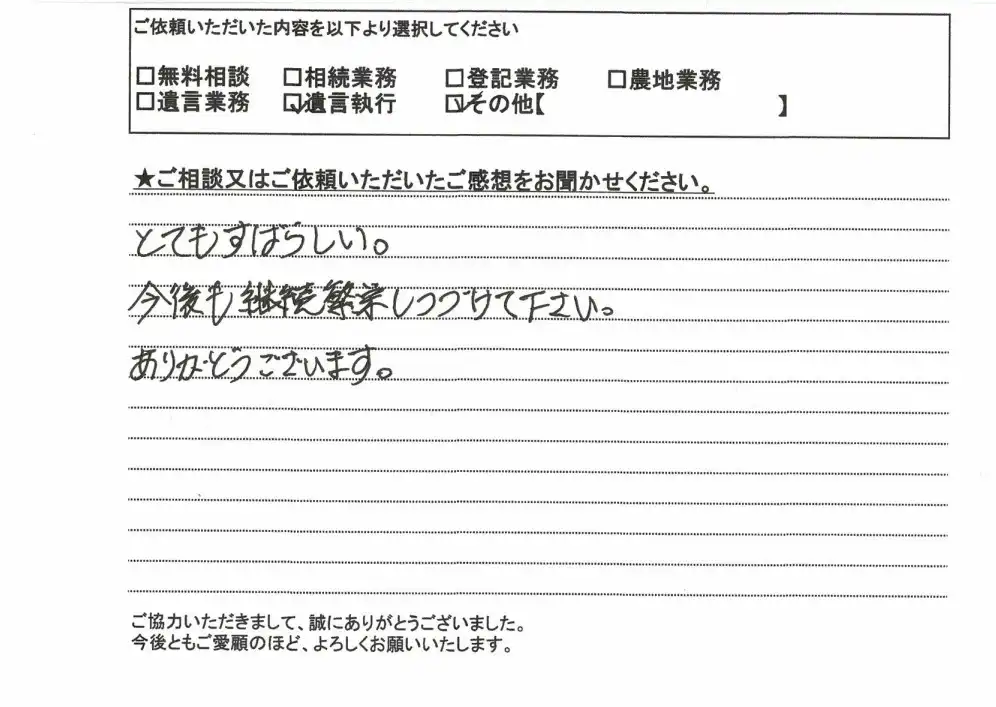 ご依頼いただいた内容を以下より選択してください
□無料相談 □相続業務 □登記業務 □農地業務
□遺言業務 ☑遺言執行 ☑その他【 】
★ご相談又はご依頼いただいたご感想をお聞かせください。
とてもすばらしい。
今後も継続繁栄しつづけて下さい。
ありがとうございます。
ご協力いただきまして、誠にありがとうございました。
今後ともご愛顧のほど、よろしくお願いいたします。